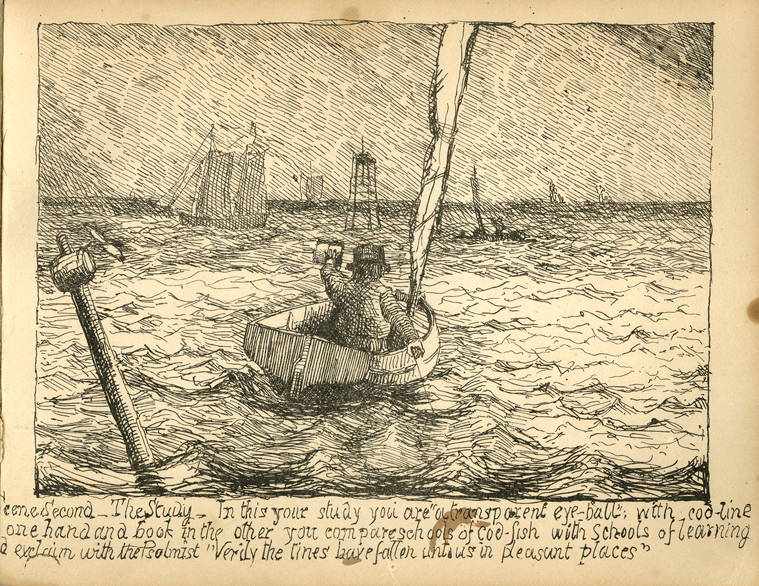 cene Second _ The Study _ In this your study you are "a transparent eye-ball"; with cod-line
one hand and book in the other you compare schools of cod-fish with schools of learning
d exclaim with the Psolmist "Verily the lines have fallen unto us in pleasant places"